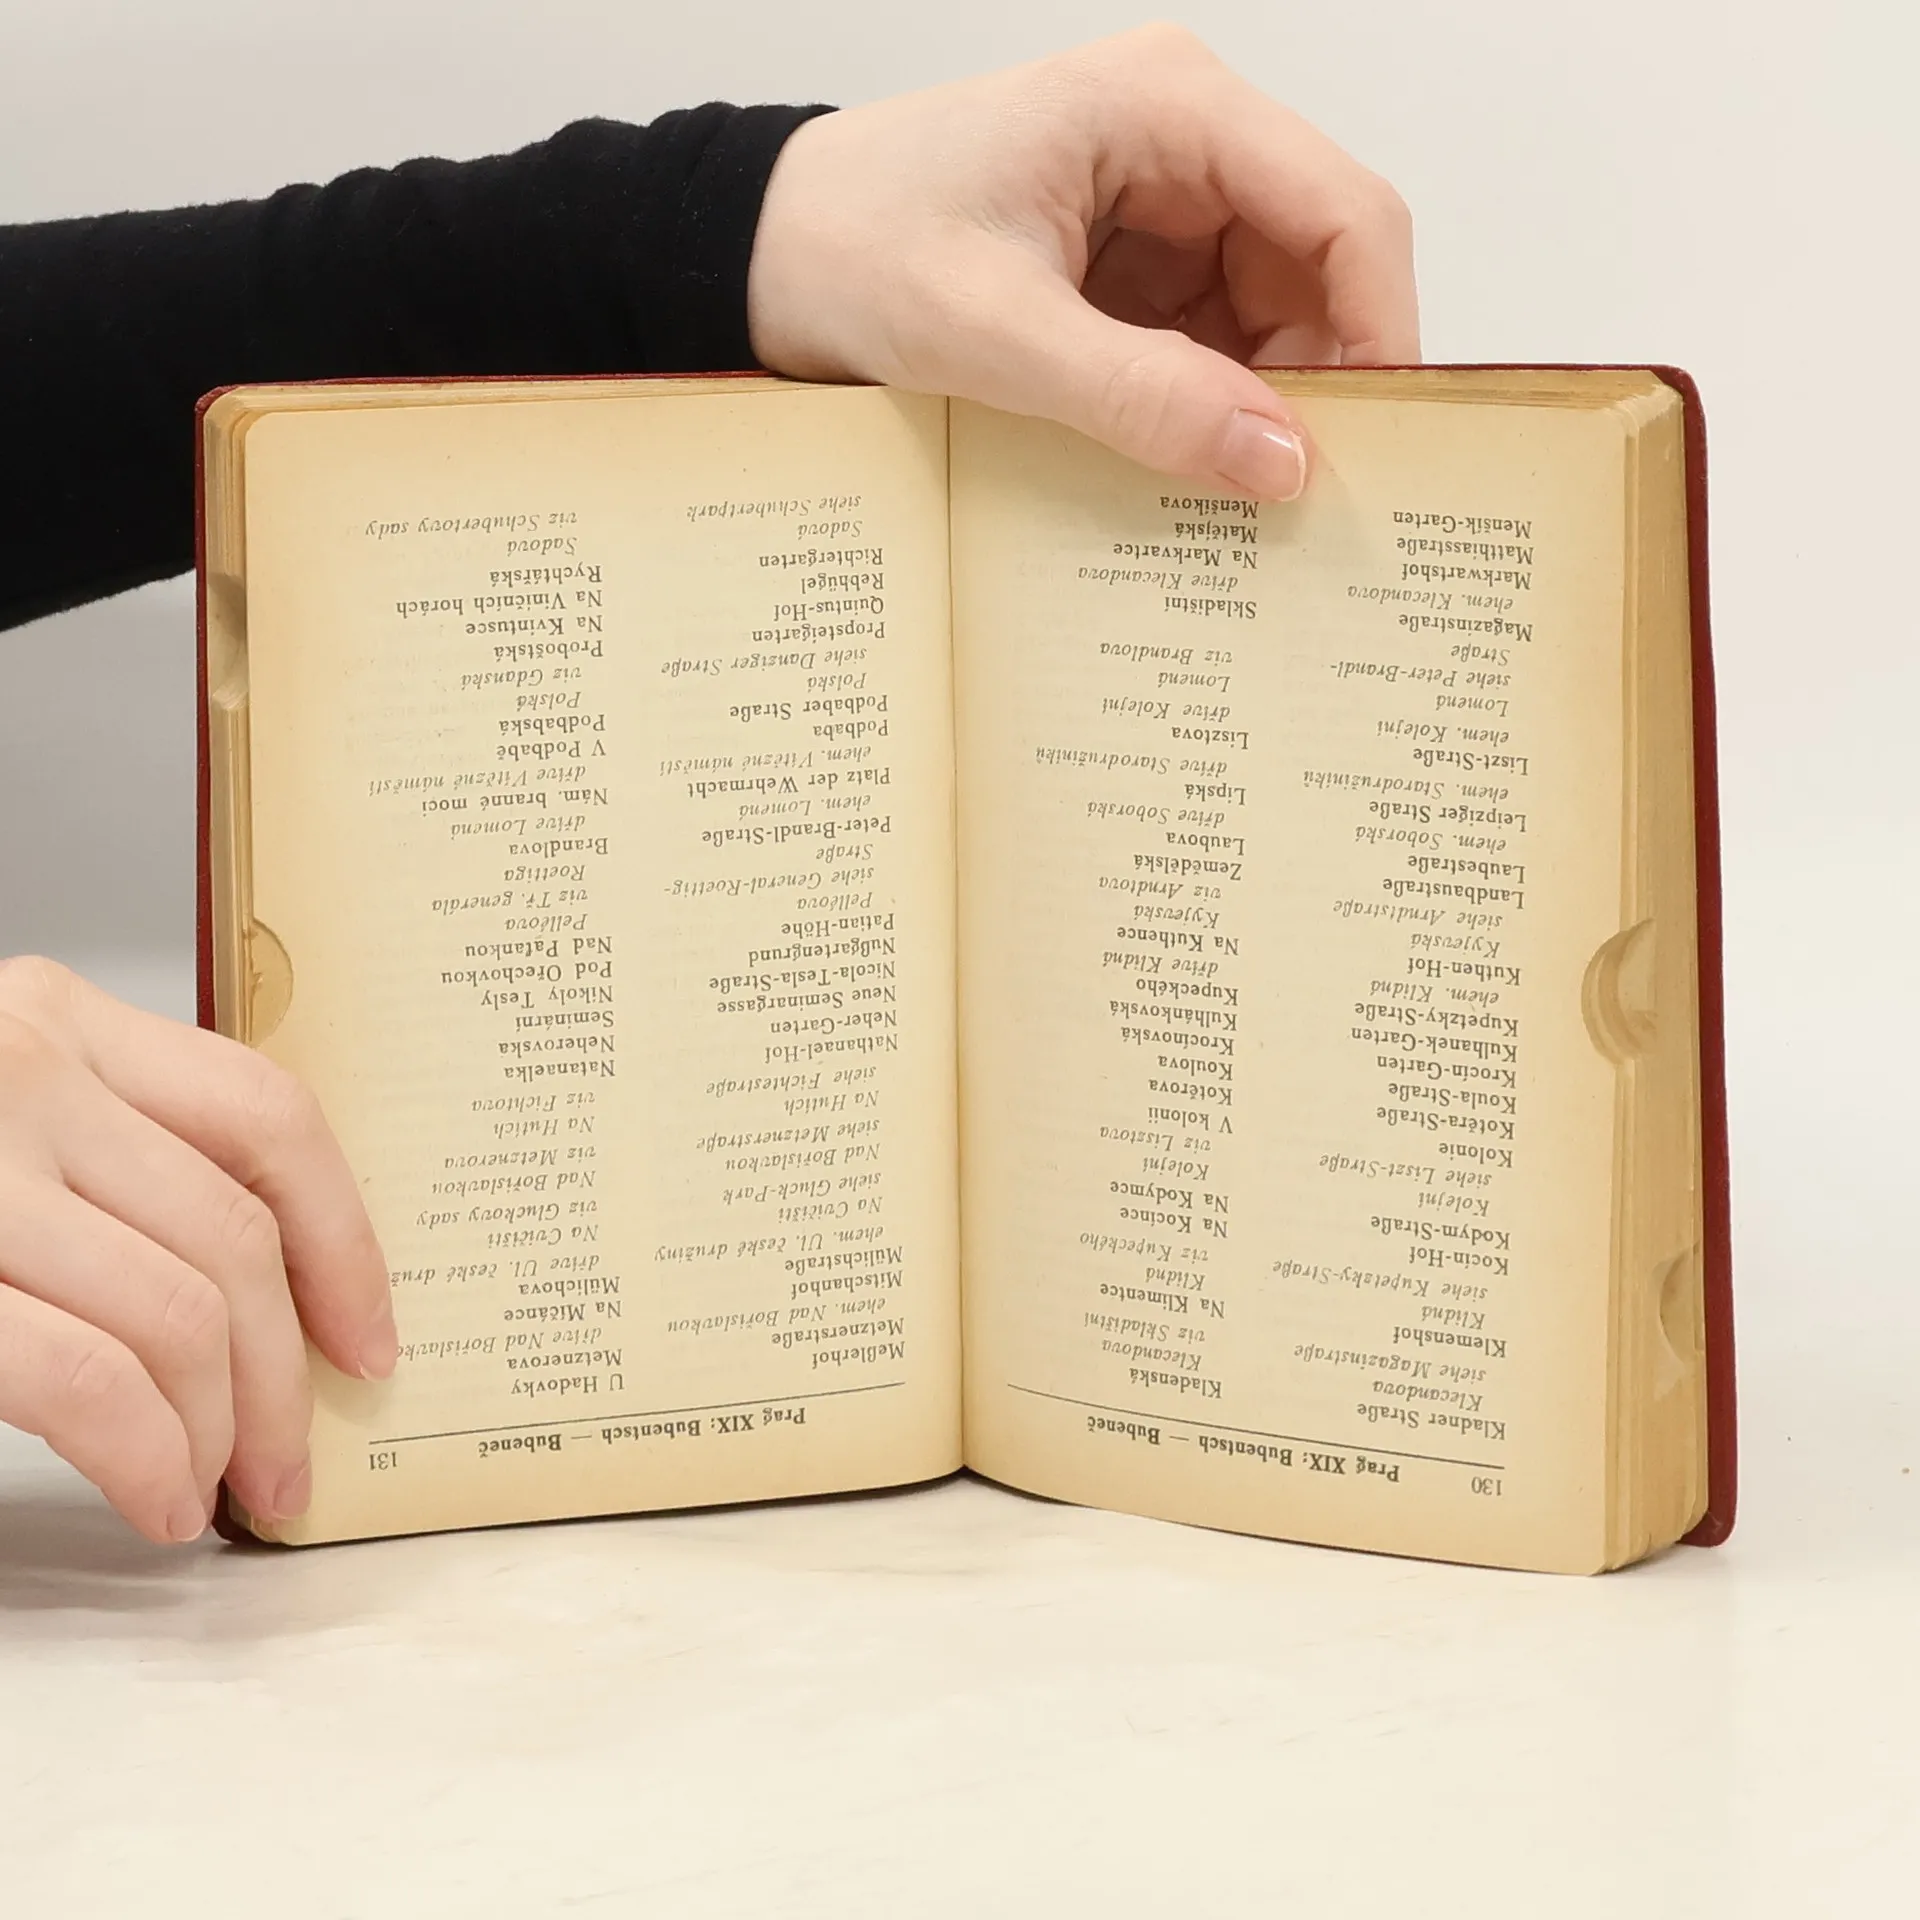 130
Prag XIX: Bubentsch — Bubeneč
Kladner Straße Kladenská
Klecandova Klecandova
siehe Magazinstraße viz Skladištní
Klemenshof Na Klimentce
Klidná Klidná
siehe Kupetzky-Straße viz Kupeckého
Kocín-Hof Na Kocínce
Kodym-Straße Na Kodymce
Kolejní Kolejní
siehe Liszt-Straße viz Lisztova
Kolonie V kolonii
Kotěra-Straße Kotěrova
Koula-Straße Koulova
Krocín-Garten Krocínovská
Kulhanek-Garten Kulhánkovská
Kupetzky-Straße Kupeckého
ehem. Klidná dříve Klidná
Kuthen-Hof Na Kuthence
Kyjevská Kyjevská
siehe Arndtstraße viz Arndtova
Landbaustraße Zemědělská
Laubestraße Laubova
ehem. Soborská dříve Soborská
Leipziger Straße Lipská
ehem. Starodružiníků dříve Starodružiníků
Liszt-Straße Lisztova
ehem. Kolejní dříve Kolejní
Lomená Lomená
siehe Peter-Brandl- viz Brandlova
Straße
Magazinstraße Skladištní
ehem. Klecandova dříve Klecandova
Markwartshof Na Markvartce
Matthiasstraße Matějská
Menšik-Garten Menšíkova
131
Prag XIX: Bubentsch — Bubeneč
Meßlerhof U Hadovky
Metznerstraße Metznerova
ehem. Nad Bořislavkou dříve Nad
Mitschanhof Na Míčánce
Mülichstraße Mülichova
ehem. Ul. české družiny dříve Ul. české
Na Cvičišti Na Cvičišti
siehe Gluck-Park viz Gluckovy sady
Nad Bořislavkou Nad Bořislavkou
siehe Metznerstraße viz Metznerova
Na Hutích Na Hutích
siehe Fichtestraße viz Fichtova
Nathanael-Hof Natanaelka
Neher-Garten Neherovska
Neue Seminargasse Seminární
Nicola-Tesla-Straße Nikoly Tesly
Nußgartengrund Pod Ořechovkou
Patian-Höhe Nad Paťankou
Pelléova Pelléova
siehe General-Roettig- viz Tř. generála
Straße Roettiga
Peter-Brandl-Straße Brandlova
ehem. Lomená dříve Lomená
Platz der Wehrmacht Nám. branné moci
ehem. Vítězné náměstí dříve Vítězné náměstí
Podbaba V Podbabě
Podbaber Straße Podbabská
Polská Polská
siehe Danziger Straße viz Gdanská
Propsteigarten Proboštská
Quintus-Hof Na Kvintusce
Rebhügel Na Viničních horách
Richtergarten Rychtářská
Sadová Sadová
siehe Schubertpark viz Schubertovy sady